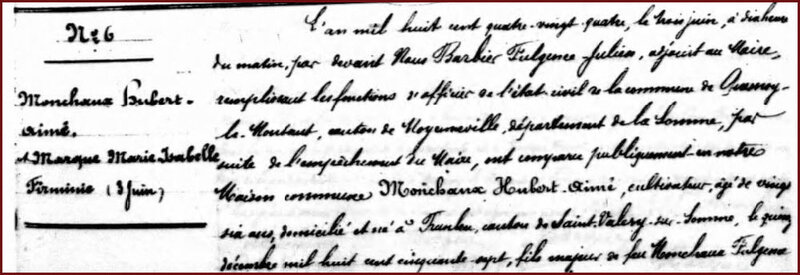 N° 6
Monchaux Hubert-
Aimé.
et Marque Marie-Isabelle
Firminie (3 Juin)
L'an mil huit cent quatre-vingt quatre, le trois juin, à dix heures
du matin, par devant Nous Barbier Fulgence Julien, adjoint au Maire,
remplissant les fonctions d'officier de l'état civil de la commune de Quesnoy-
le-Montant, canton de Moyenneville, département de la Somme, par
suite de l'empêchement du Maire, ont comparu publiquement en notre
Maison commune Monchaux Hubert-Aimé, cultivateur, âgé de vingt
six ans, domicilié et né à Franleu, canton de Saint-Valery-sur-Somme, le quinze
décembre mil huit cent cinquante sept, fils majeur de feu Monchaux Fulgence